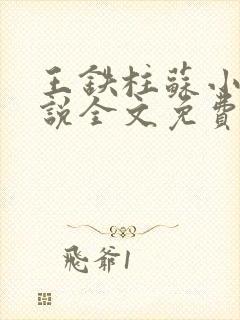 王鉄柱蘇小
說全文免費
飛爺1